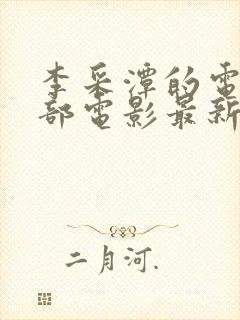 李采潭的電
部電影最新
二月河.